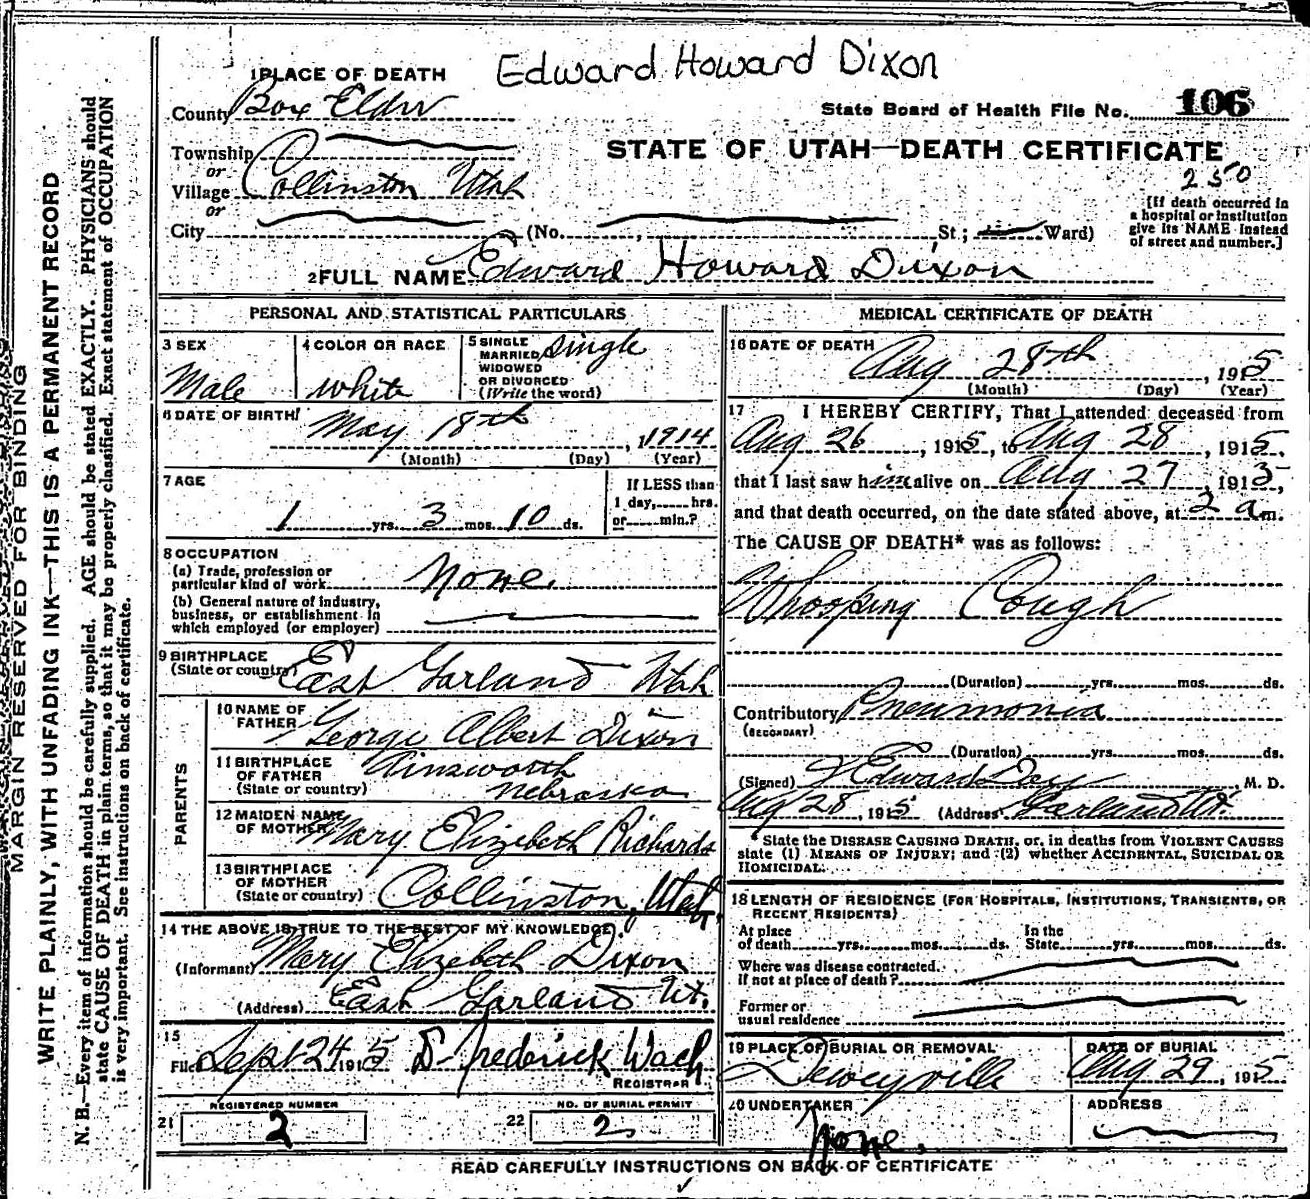 Edward Howard Dixon
1 PLACE OF DEATH
County Box Elder
State Board of Health File No. 106
Township
or
Village Collinston Utah
or
City (No. , St; Ward)
STATE OF UTAH—DEATH CERTIFICATE
250
[If death occurred in
a hospital or institution
give its NAME instead
of street and number.]
2 FULL NAME Edward Howard Dixon
PERSONAL AND STATISTICAL PARTICULARS
3 SEX
Male
4 COLOR OR RACE
white
5 SINGLE
MARRIED
WIDOWED
OR DIVORCED
(Write the word)
single
6 DATE OF BIRTH
May 18th, 1914
(Month) (Day) (Year)
7 AGE
1 yrs. 3 mos. 10 ds.
If LESS than
1 day, hrs.
or min.?
8 OCCUPATION
(a) Trade, profession or
particular kind of work None.
(b) General nature of industry,
business, or establishment in
which employed (or employer)
9 BIRTHPLACE
(State or country) East Garland Utah
PARENTS
10 NAME OF
FATHER George Albert Dixon
11 BIRTHPLACE
OF FATHER
(State or country)
Ainsworth
Nebraska
12 MAIDEN NAME
OF MOTHER Mary Elizabeth Richards
13 BIRTHPLACE
OF MOTHER
(State or country) Collinston, Utah
14 THE ABOVE IS TRUE TO THE BEST OF MY KNOWLEDGE
(Informant) Mary Elizabeth Dixon
(Address) East Garland Ut.
15
Filed Sept 24 1915 D. Frederick Wach
REGISTRAR
21 REGISTERED NUMBER
2
22 NO. OF BURIAL PERMIT
2
MEDICAL CERTIFICATE OF DEATH
16 DATE OF DEATH
Aug 28th, 1915
(Month) (Day) (Year)
17 I HEREBY CERTIFY, That I attended deceased from
Aug 26, 1915, to Aug 28, 1915,
that I last saw him alive on Aug 27, 1915,
and that death occurred, on the date stated above, at 2 a m.
The CAUSE OF DEATH* was as follows:
Whooping Cough
(Duration) yrs. mos. ds.
Contributory Pneumonia
(SECONDARY)
(Duration) yrs. mos. ds.
(Signed) Edward Day M. D.
Aug 28, 1915 (Address) Garland Ut.
State the DISEASE CAUSING DEATH, or, in deaths from VIOLENT CAUSES
state (1) MEANS OF INJURY; and (2) whether ACCIDENTAL, SUICIDAL OR
HOMICIDAL.
18 LENGTH OF RESIDENCE (FOR HOSPITALS, INSTITUTIONS, TRANSIENTS, OR
RECENT RESIDENTS)
At place
of death yrs. mos. ds.
In the
State yrs. mos. ds.
Where was disease contracted.
If not at place of death?
Former or
usual residence
19 PLACE OF BURIAL OR REMOVAL
Deweyville
DATE OF BURIAL
Aug 29, 1915
20 UNDERTAKER
None.
ADDRESS
READ CAREFULLY INSTRUCTIONS ON BACK OF CERTIFICATE
MARGIN RESERVED FOR BINDING
WRITE PLAINLY, WITH UNFADING INK—THIS IS A PERMANENT RECORD
N. B.—Every item of information should be carefully supplied. AGE should be stated EXACTLY. PHYSICIANS should
state CAUSE OF DEATH in plain terms, so that it may be properly classified. Exact statement of OCCUPATION
is very important. See instructions on back of certificate.